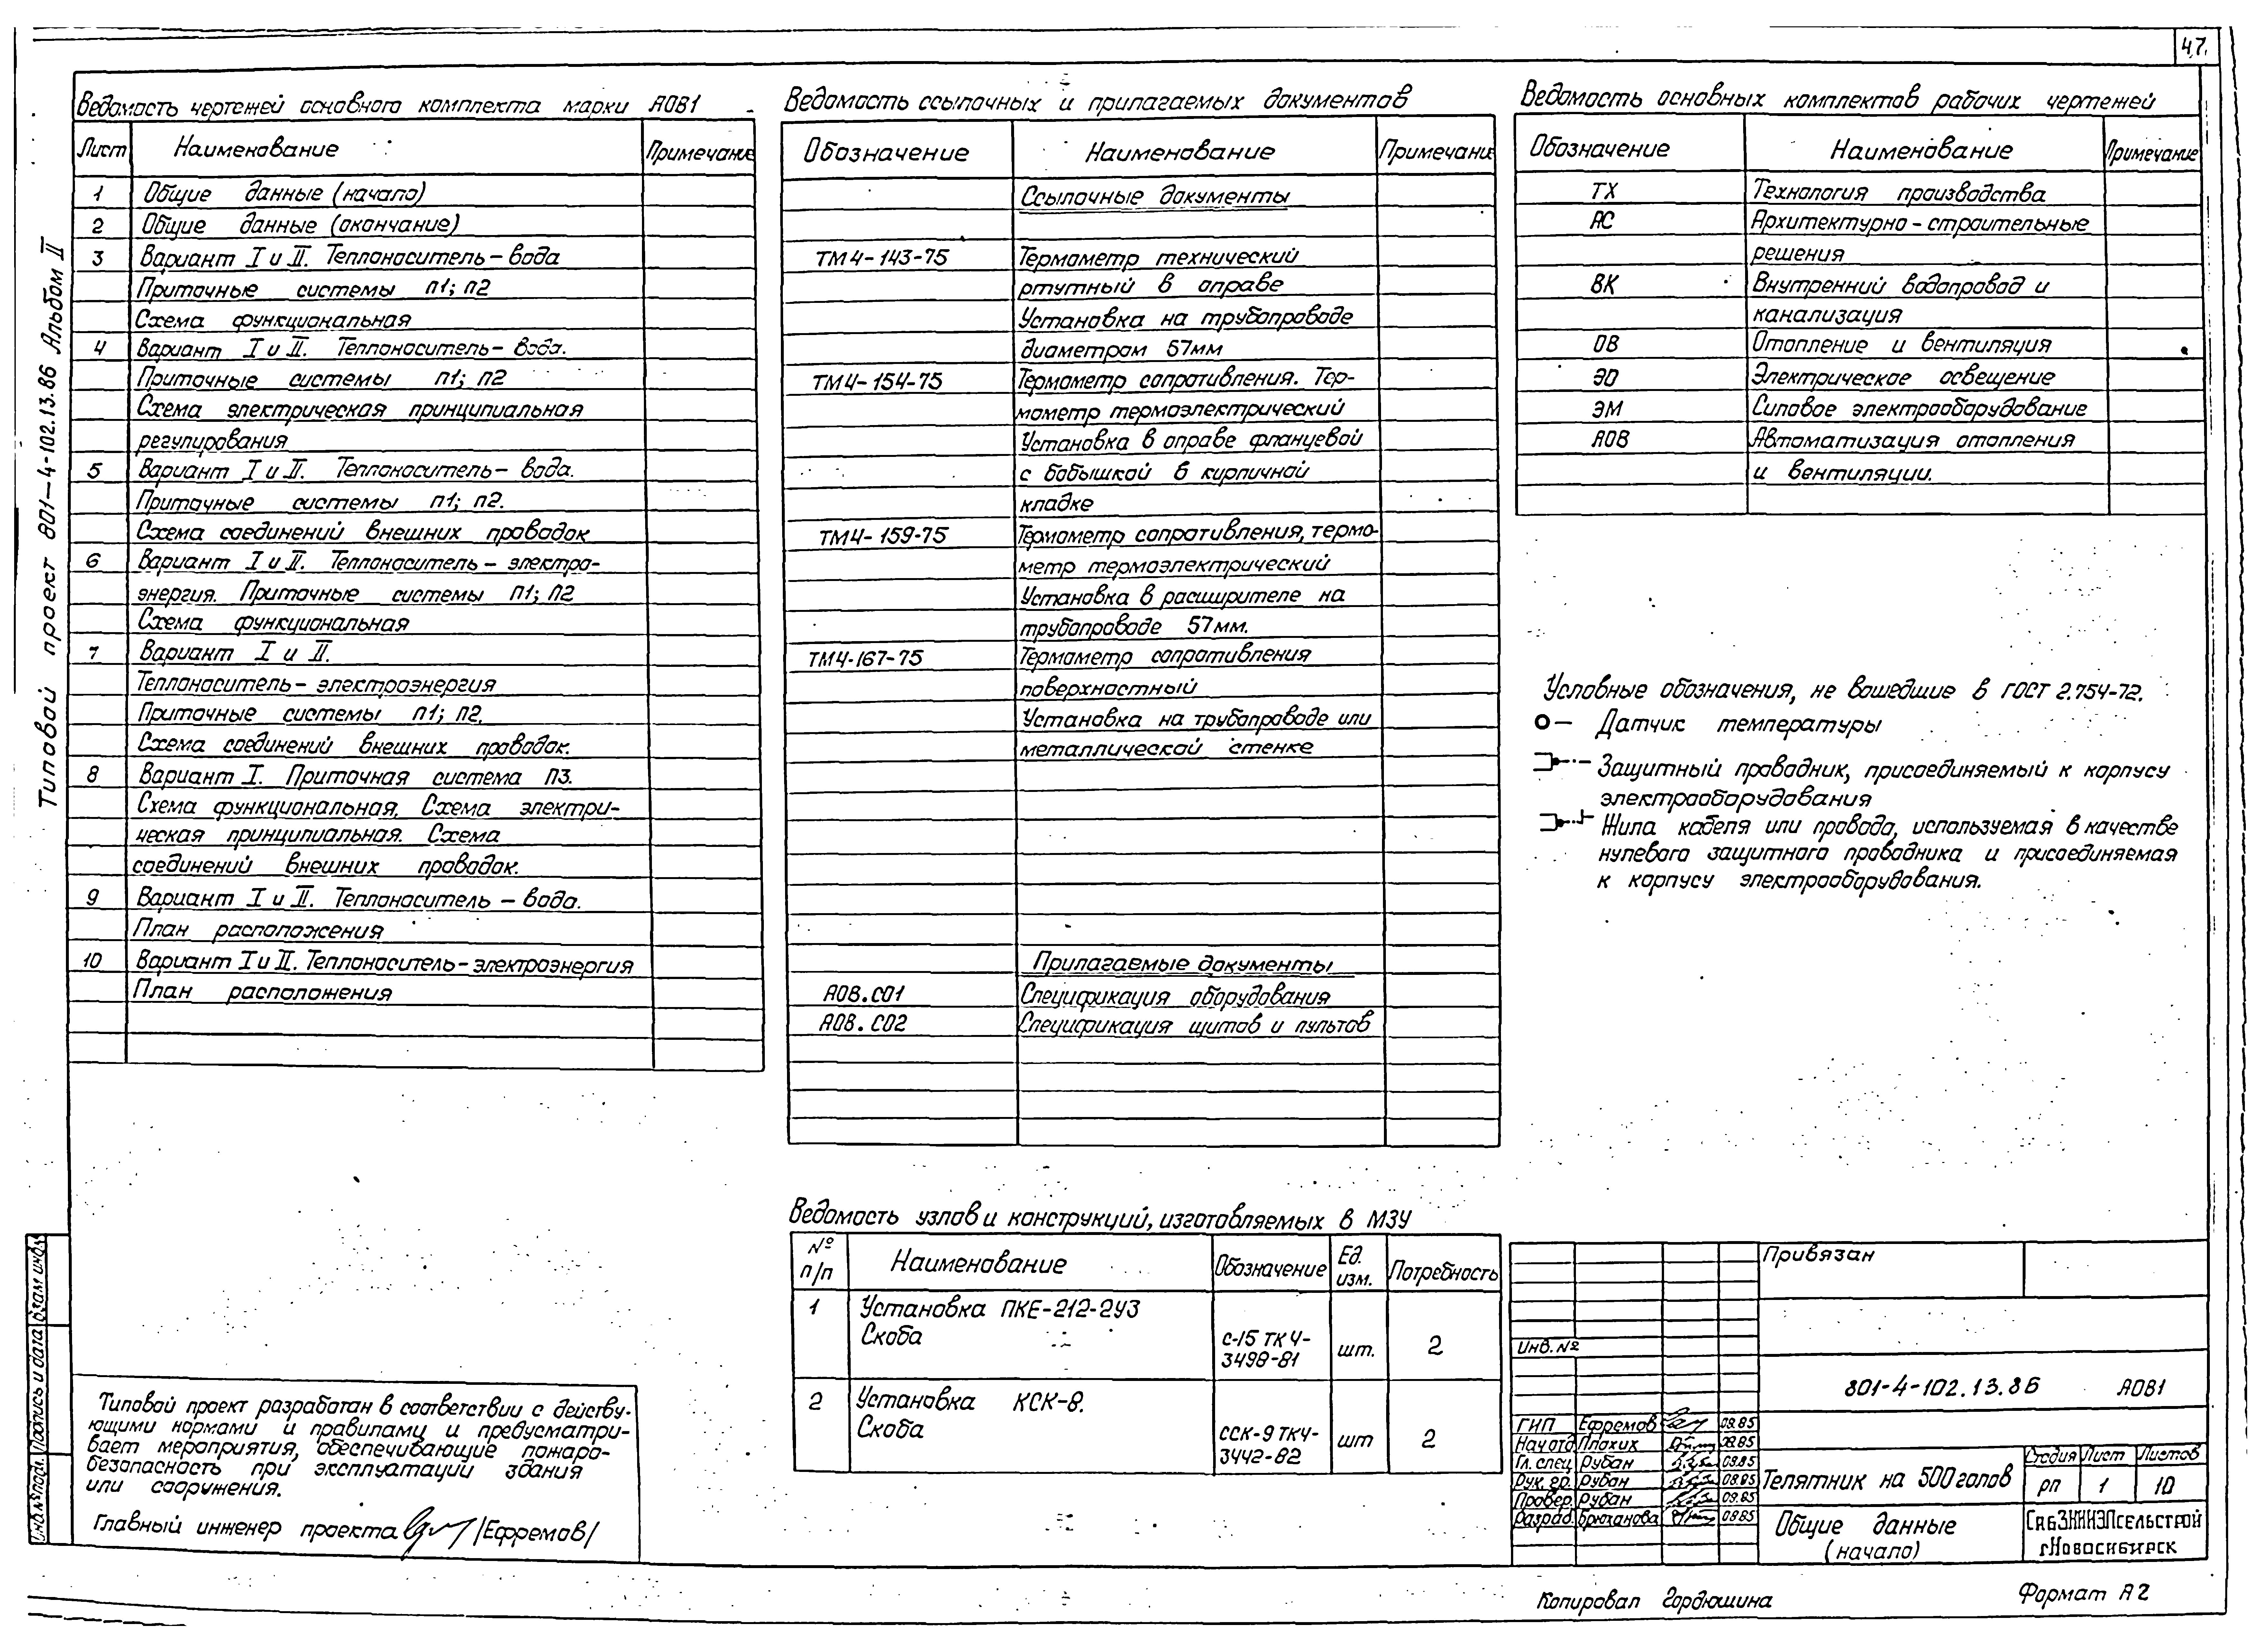 47.
Типовой проект 801-4-102.13.86 Альбом II
Ведомость чертежей основного комплекта марки АОВ1
Лист Наименование Примечание
1 Общие данные (начало)
2 Общие данные (окончание)
3 Вариант I и II. Теплоноситель – вода
Приточные системы П1; П2
Схема функциональная
4 Вариант I и II. Теплоноситель – вода.
Приточные системы П1; П2
Схема электрическая принципиальная
регулирования
5 Вариант I и II. Теплоноситель – вода.
Приточные системы П1; П2.
Схема соединений внешних проводок
6 Вариант I и II. Теплоноситель – электро-
энергия. Приточные системы П1; П2
Схема функциональная
7 Вариант I и II.
Теплоноситель – электроэнергия
Приточные системы П1; П2.
Схема соединений внешних проводок.
8 Вариант I. Приточная система П3.
Схема функциональная. Схема электри-
ческая принципиальная. Схема
соединений внешних проводок.
9 Вариант I и II. Теплоноситель – вода.
План расположения
10 Вариант I и II. Теплоноситель – электроэнергия
План расположения
Ведомость ссылочных и прилагаемых документов
Обозначение Наименование Примечани
Ссылочные документы
ТМ4-143-75 Термометр технический
ртутный в оправе
Установка на трубопроводе
диаметром 57мм
ТМ4-154-75 Термометр сопротивления. Тер-
мометр термоэлектрический
Установка в оправе фланцевой
с бобышкой в кирпичной
кладке
ТМ4-159-75 Термометр сопротивления, термо-
метр термоэлектрический
Установка в расширителе на
трубопроводе 57мм.
ТМ4-167-75 Термометр сопротивления
поверхностный
Установка на трубопроводе или
металлической стенке
Прилагаемые документы
АОВ.СО1 Спецификация оборудования
АОВ.СО2 Спецификация щитов и пультов
Ведомость основных комплектов рабочих чертежей
Обозначение Наименование Примечание
ТХ Технология производства
АС Архитектурно-строительные
решения
ВК Внутренний водопровод и
канализация
ОВ Отопление и вентиляция
ЭО Электрическое освещение
ЭМ Силовое электрооборудование
АОВ Автоматизация отопления
и вентиляции.
Условные обозначения, не вошедшие в ГОСТ 2.754-72.
– Датчик температуры
Защитный проводник, присоединяемый к корпусу
электрооборудования
Жила кабеля или провода, используемая в качестве
нулевого защитного проводника и присоединяемая
к корпусу электрооборудования.
Ведомость узлов и конструкций, изготовляемых в МЗУ
№ п/п Наименование Обозначение Ед. изм. Потребность
1 Установка ПКЕ-212-2У3
Скоба С-15 ТК4-3498-81 шт. 2
2 Установка КСК-8.
Скоба ССК-9 ТК4-3442-82 шт 2
Типовой проект разработан в соответствии с действу-
ющими нормами и правилами и предусматри-
вает мероприятия, обеспечивающие пожаро-
безопасность при эксплуатации здания
или сооружения.
Главный инженер проекта /Ефремов/
Инв.№подл. Подпись и дата Взам инв.№
Привязан
Инв. №
801-4-102.13.86 АОВ1
ГИП Ефремов 09.85
Нач отд Плохих 08.85
Гл. спец Рубан 09.85
Рук. гр. Рубан 08.85
Провер. Рубан 09.85
Разраб. Брюханова 08.85
Телятник на 500 голов
Стадия Лист Листов
РП 1 10
Общие данные
(начало)
СибЗНИИЭПсельстрой
г.Новосибирск
Копировал Гордюшина
Формат А2